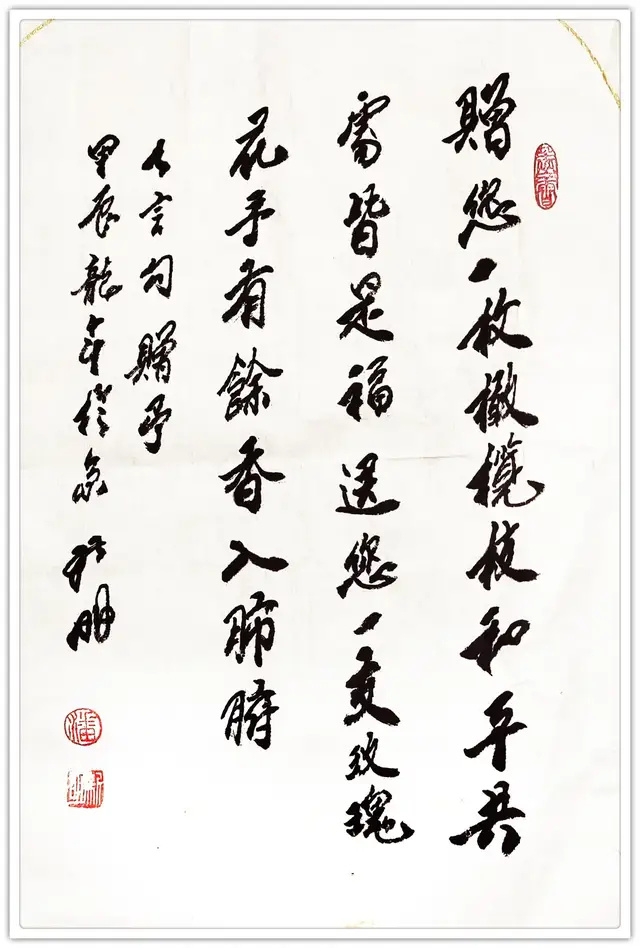 贈您一枚橄欖枝和平共
需皆是福送您一支玫瑰
花手有餘香入肺腑
言句贈予
甲辰龍年京